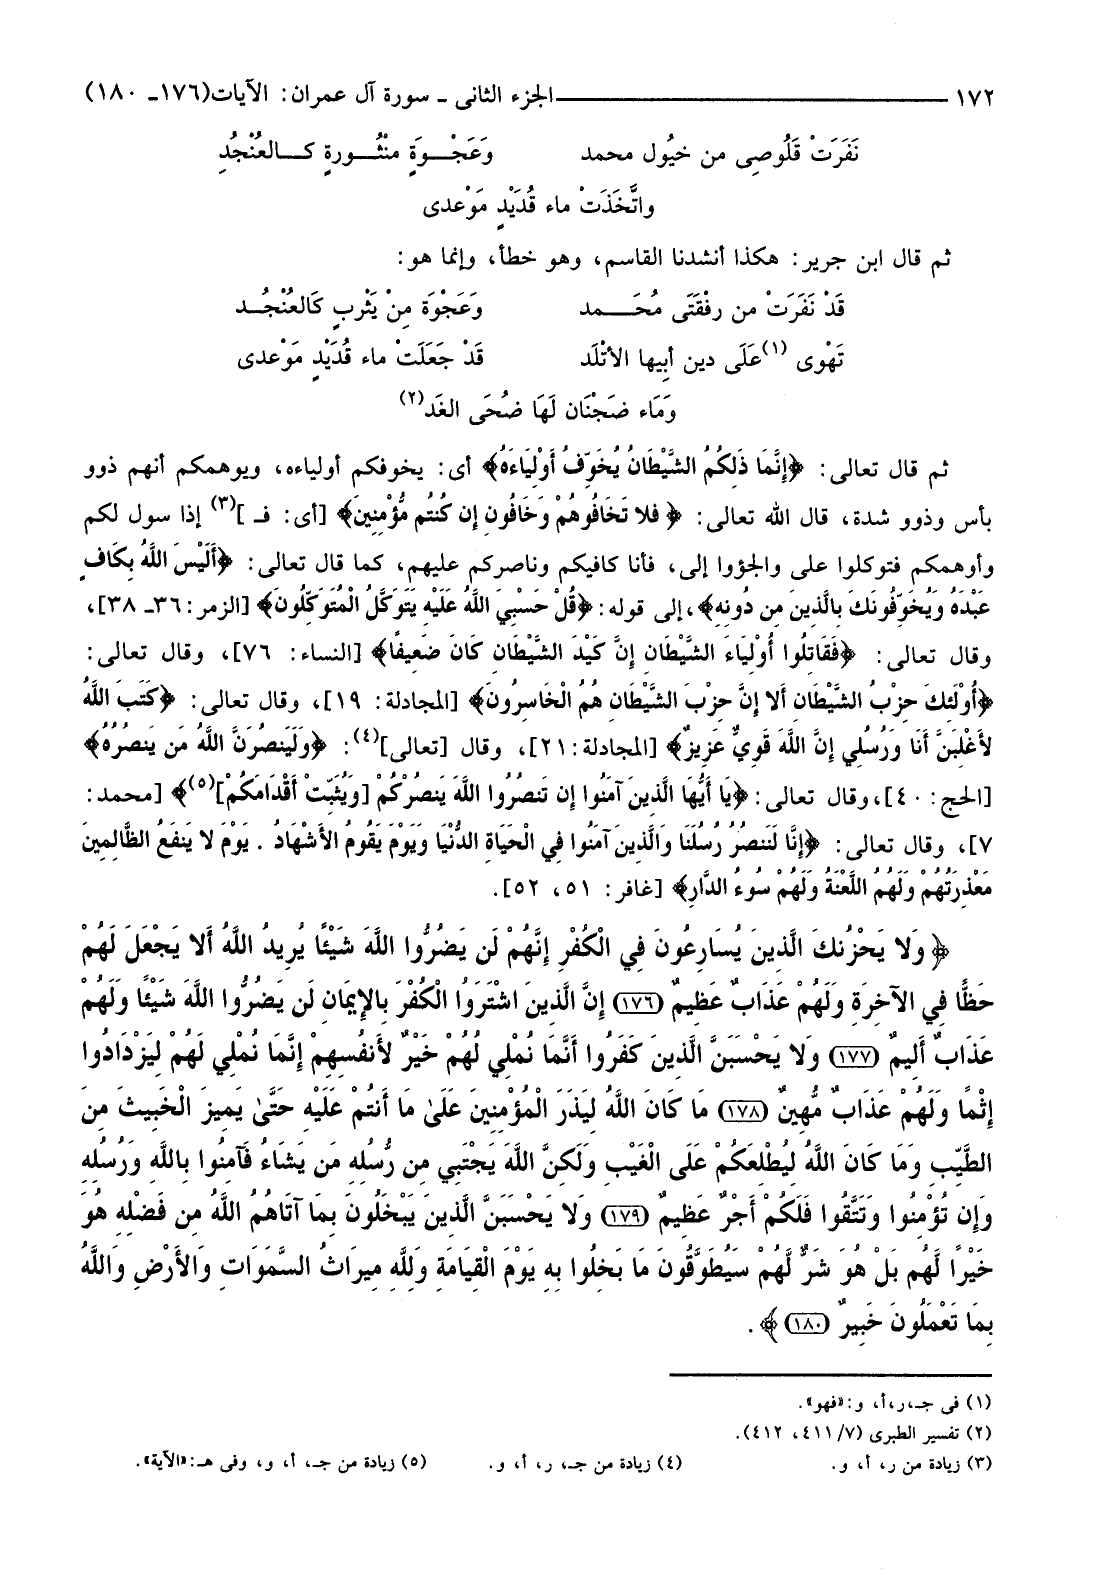 ١٧٢ ــــــــــــــــــــ الجزء الثانى ـ سورة آل عمران: الآيات(١٧٦ـ ١٨٠)
نَفَرَتْ قَلُوصِى من خيُول محمد وَعَجْـوَةٍ منْثُـورةٍ كـالعُنْجُدِ
واتَّخَذَتْ ماء قُدَيْدٍ مَوْعدى
ثم قال ابن جرير: هكذا أنشدنا القاسم، وهو خطأ، وإنما هو:
قَدْ نَفَرَتْ من رفْقَتَى مُحَـمد وَعَجْوَة مِنْ يَثْربِ كَالعُنْجُـد
تَهْوى (١)عَلَى دين أبيها الأتْلَد قَدْ جَعَلَتْ ماء قُدَيْدٍ مَوْعدى
وَمَاء ضَجْنَان لَهَا ضُحَى الغَد(٢)
ثم قال تعالى: ﴿إِنَّمَا ذَلِكُمُ الشَّيْطَانُ يُخَوِّفُ أَوْلِيَاءَهُ﴾ أى: يخوفكم أولياءه، ويوهمكم أنهم ذوو
بأس وذوو شدة، قال الله تعالى: ﴿ فَلا تَخَافُوهُمْ وَخَافُونِ إِن كُنتُم مُّؤْمِنِينَ﴾ [أى: فـ ](٣) إذا سول لكم
وأوهمكم فتوكلوا على والجؤوا إلى، فأنا كافيكم وناصركم عليهم، كما قال تعالى: ﴿أَلَيْسَ اللَّهُ بِكَافٍ
عَبْدَهُ وَيُخَوِّفُونَكَ بِالَّذِينَ مِن دُونِهِ﴾،إلى قوله: ﴿قُلْ حَسْبِيَ اللَّهُ عَلَيْهِ يَتَوَكَّلُ الْمُتَوَكِّلُونَ﴾ [الزمر:٣٦ـ ٣٨]،
وقال تعالى: ﴿فَقَاتِلُوا أَوْلِيَاءَ الشَّيْطَانِ إِنَّ كَيْدَ الشَّيْطَانِ كَانَ ضَعِيفًا﴾ [النساء: ٧٦]، وقال تعالى:
﴿أُوْلَئِكَ حِزْبُ الشَّيْطَانِ أَلا إِنَّ حِزْبَ الشَّيْطَانِ هُمُ الْخَاسِرُونَ﴾ [المجادلة: ١٩]، وقال تعالى: ﴿كَتَبَ اللَّهُ
لأَغْلِبَنَّ أَنَا وَرُسُلِي إِنَّ اللَّهَ قَوِيٌّ عَزِيزٌ﴾ [المجادلة:٢١]، وقال [تعالى](٤): ﴿وَلَيَنصُرَنَّ اللَّهُ مَن يَنصُرُهُ﴾
[الحج:٤٠]،وقال تعالى:﴿يَا أَيُّهَا الَّذِينَ آمَنُوا إِن تَنصُرُوا اللَّهَ يَنصُرْكُمْ [وَيُثَبِّتْ أَقْدَامَكُمْ](٥)﴾ [محمد:
٧]، وقال تعالى: ﴿إِنَّا لَنَنصُرُ رُسُلَنَا وَالَّذِينَ آمَنُوا فِي الْحَيَاةِ الدُّنْيَا وَيَوْمَ يَقُومُ الأَشْهَادُ . يَوْمَ لا يَنفَعُ الظَّالِمِينَ
مَعْذِرَتُهُمْ وَلَهُمُ اللَّعْنَةُ وَلَهُمْ سُوءُ الدَّارِ﴾ [غافر: ٥١، ٥٢].
﴿ وَلا يَحْزُنكَ الَّذِينَ يُسَارِعُونَ فِي الْكُفْرِ إِنَّهُمْ لَن يَضُرُّوا اللَّهَ شَيْئًا يُرِيدُ اللَّهُ أَلا يَجْعَلَ لَهُمْ
حَظًّا فِي الآخِرَةِ وَلَهُمْ عَذَابٌ عَظِيمٌ (١٧٦) إِنَّ الَّذِينَ اشْتَرَوُا الْكُفْرَ بِالإِيمَانِ لَن يَضُرُّوا اللَّهَ شَيْئًا وَلَهُمْ
عَذَابٌ أَلِيمٌ (١٧٧) وَلا يَحْسَبَنَّ الَّذِينَ كَفَرُوا أَنَّمَا نُمْلِي لَهُمْ خَيْرٌ لأَنفُسِهِمْ إِنَّمَا نُمْلِي لَهُمْ لِيَزْدَادُوا
إِثْمًا وَلَهُمْ عَذَابٌ مُّهِينٌ (١٧٨) مَا كَانَ اللَّهُ لِيَذَرَ الْمُؤْمِنِينَ عَلَىٰ مَا أَنتُمْ عَلَيْهِ حَتَّىٰ يَمِيزَ الْخَبِيثَ مِنَ
الطَّيِّبِ وَمَا كَانَ اللَّهُ لِيُطْلِعَكُمْ عَلَى الْغَيْبِ وَلَكِنَّ اللَّهَ يَجْتَبِي مِن رُّسُلِهِ مَن يَشَاءُ فَآمِنُوا بِاللَّهِ وَرُسُلِهِ
وَإِن تُؤْمِنُوا وَتَتَّقُوا فَلَكُمْ أَجْرٌ عَظِيمٌ (١٧٩) وَلا يَحْسَبَنَّ الَّذِينَ يَبْخَلُونَ بِمَا آتَاهُمُ اللَّهُ مِن فَضْلِهِ هُوَ
خَيْرًا لَّهُم بَلْ هُوَ شَرٌّ لَّهُمْ سَيُطَوَّقُونَ مَا بَخِلُوا بِهِ يَوْمَ الْقِيَامَةِ وَلِلَّهِ مِيرَاثُ السَّمَوَاتِ وَالأَرْضِ وَاللَّهُ
بِمَا تَعْمَلُونَ خَبِيرٌ (١٨٠)﴾ .
(١) فى جـ،ر،أ، و:«فهو».
(٢) تفسير الطبرى (٧/ ٤١١، ٤١٢).
(٣) زيادة من ر، أ، و. (٤) زيادة من جـ، ر، أ، و. (٥) زيادة من جـ، أ، و، وفى هـ:«الآية».